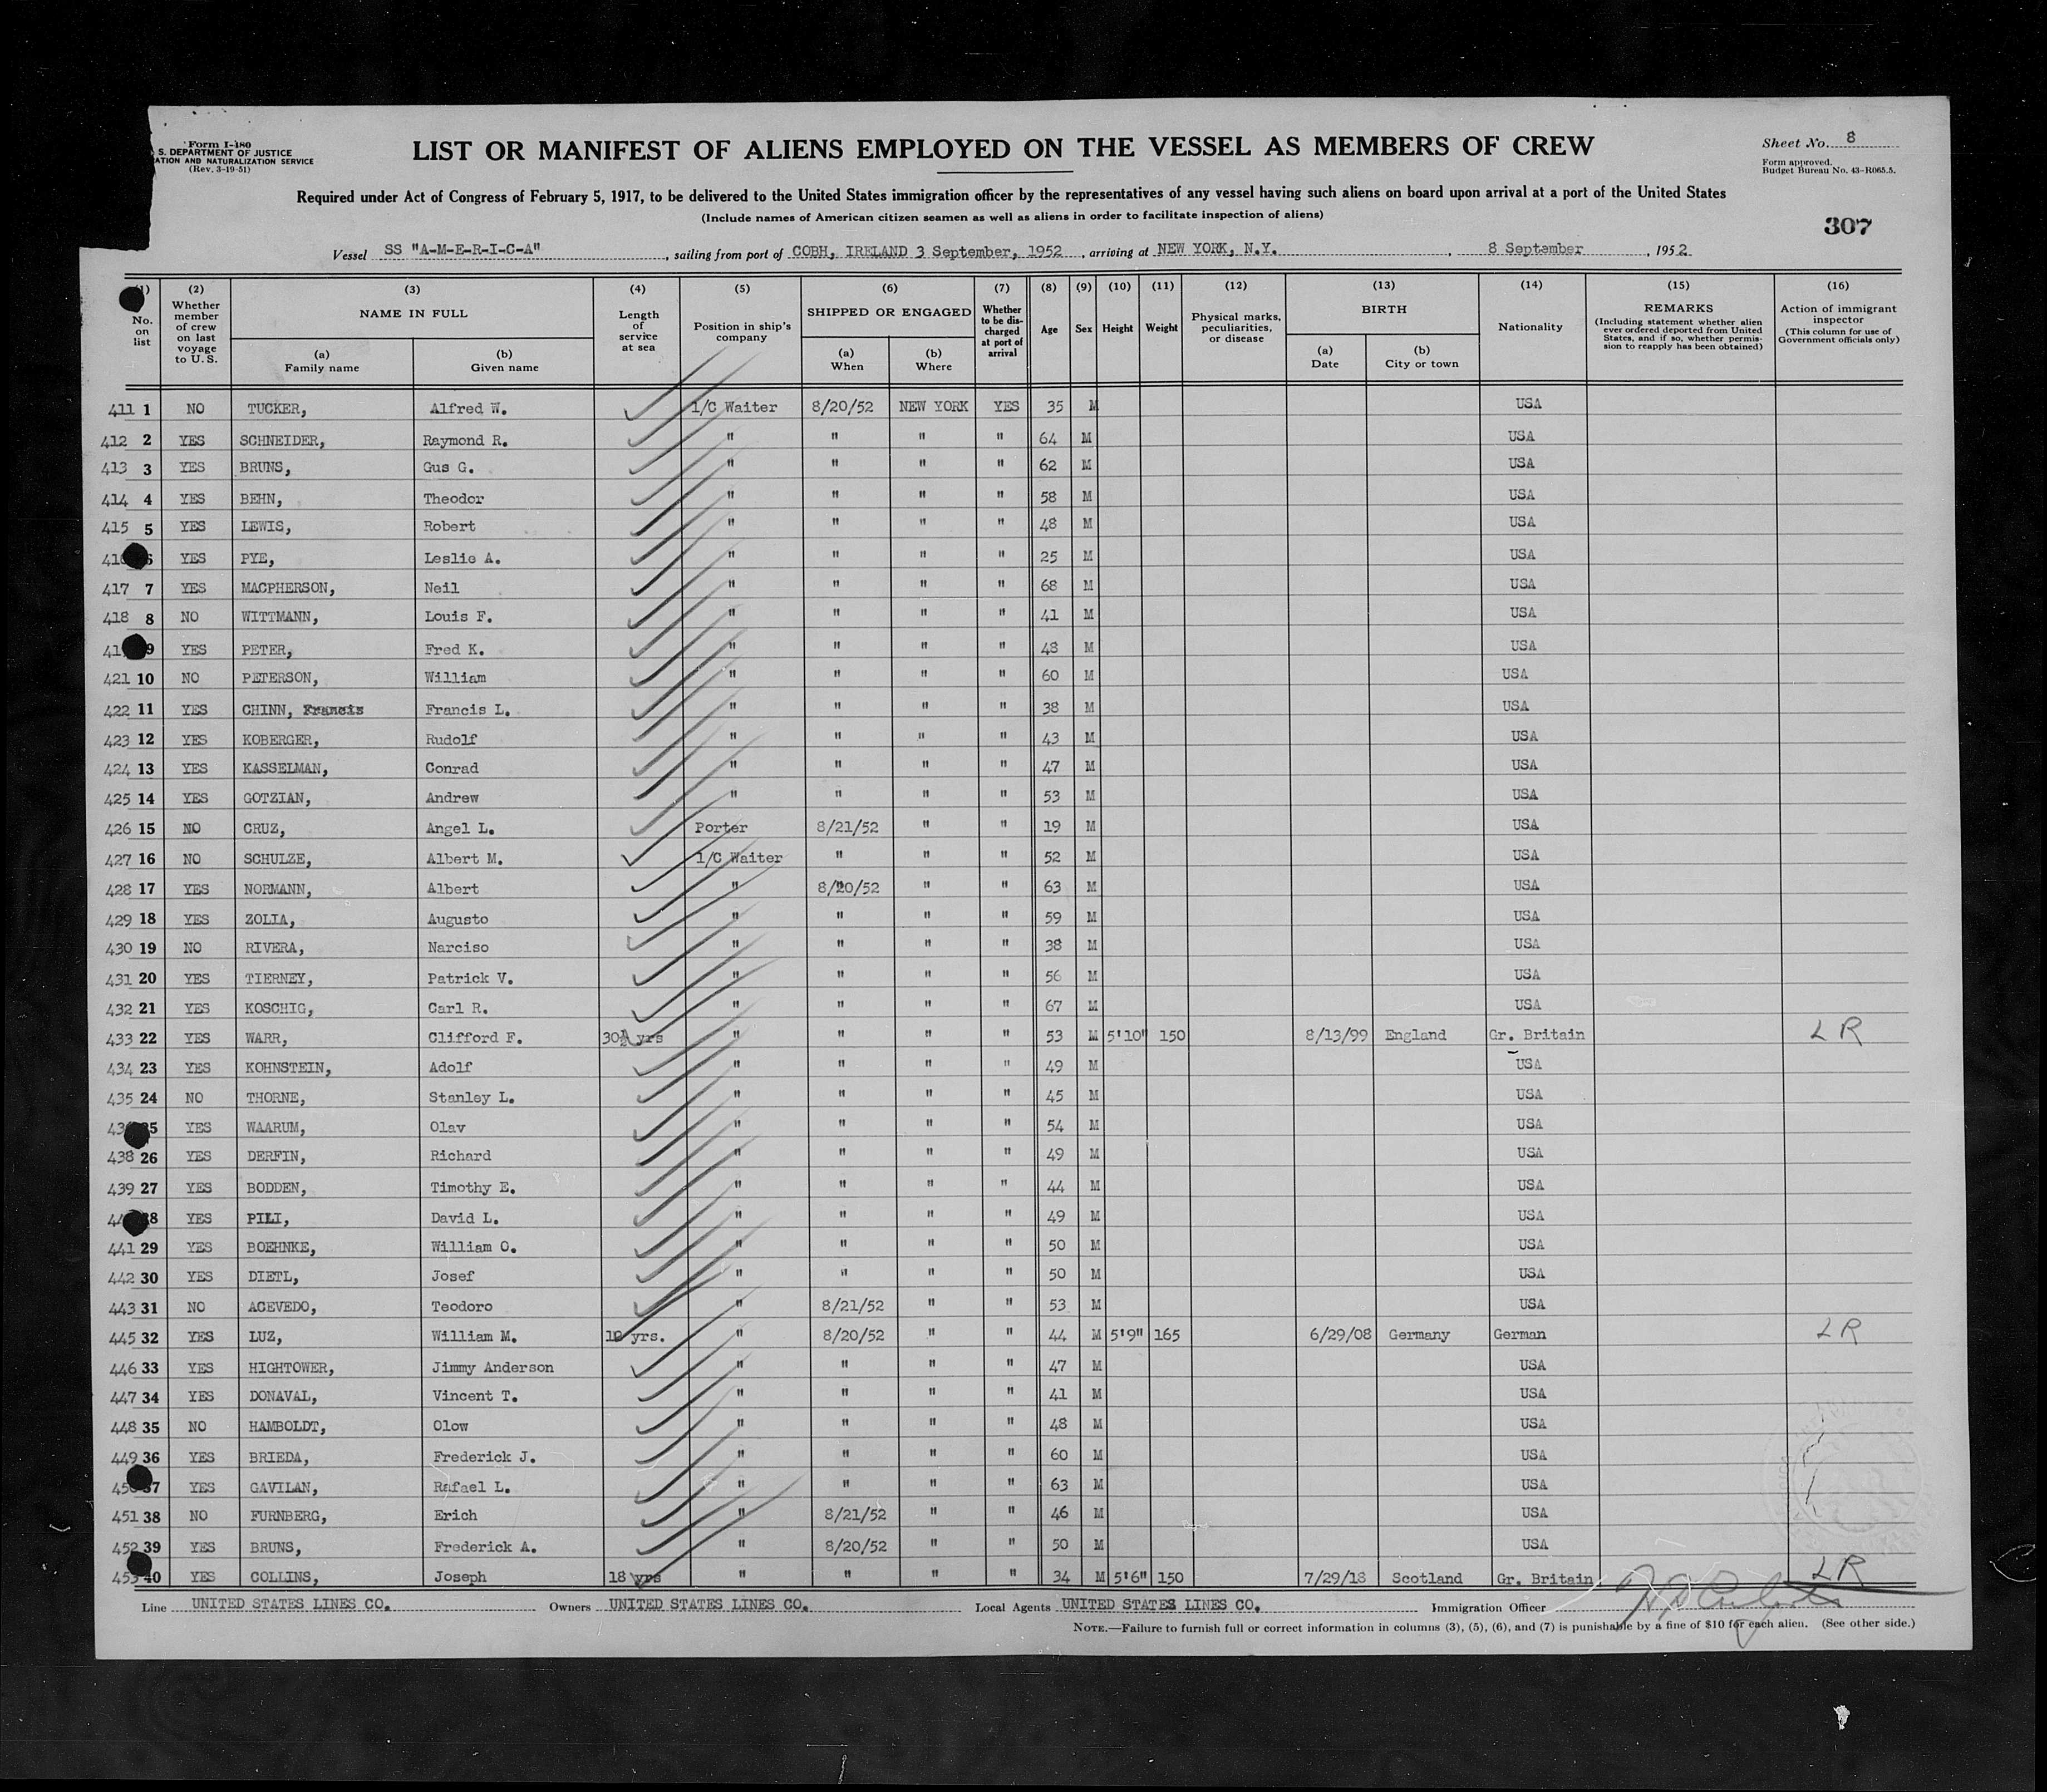 Form I-480
S. DEPARTMENT OF JUSTICE
ATION AND NATURALIZATION SERVICE
(Rev. 3-19-51)
LIST OR MANIFEST OF ALIENS EMPLOYED ON THE VESSEL AS MEMBERS OF CREW
Sheet No. 8
Form approved.
Budget Bureau No. 43-R065.5.
Required under Act of Congress of February 5, 1917, to be delivered to the United States immigration officer by the representatives of any vessel having such aliens on board upon arrival at a port of the United States
(Include names of American citizen seamen as well as aliens in order to facilitate inspection of aliens)
307
Vessel SS "A-M-E-R-I-C-A", sailing from port of COBH, IRELAND 3 September, 1952, arriving at NEW YORK, N.Y., 8 September, 1952
(1) No. on list (2) Whether member of crew on last voyage to U. S. (3) NAME IN FULL (a) Family name (b) Given name (4) Length of service at sea (5) Position in ship's company (6) SHIPPED OR ENGAGED (a) When (b) Where (7) Whether to be discharged at port of arrival (8) Age (9) Sex (10) Height (11) Weight (12) Physical marks, peculiarities, or disease (13) BIRTH (a) Date (b) City or town (14) Nationality (15) REMARKS (Including statement whether alien ever ordered deported from United States, and if so, whether permission to reapply has been obtained) (16) Action of immigrant inspector (This column for use of Government officials only)
411 1 NO TUCKER, Alfred W. 1/C Waiter 8/20/52 NEW YORK YES 35 M USA
412 2 YES SCHNEIDER, Raymond R. " " " " 64 M USA
413 3 YES BRUNS, Gus G. " " " " 62 M USA
414 4 YES BEHN, Theodor " " " " 58 M USA
415 5 YES LEWIS, Robert " " " " 48 M USA
41 6 YES PYE, Leslie A. " " " " 25 M USA
417 7 YES MACPHERSON, Neil " " " " 68 M USA
418 8 NO WITTMANN, Louis F. " " " " 41 M USA
41 9 YES PETER, Fred K. " " " " 48 M USA
421 10 NO PETERSON, William " " " " 60 M USA
422 11 YES CHINN, Francis Francis L. " " " " 38 M USA
423 12 YES KOBERGER, Rudolf " " " " 43 M USA
424 13 YES KASSELMAN, Conrad " " " " 47 M USA
425 14 YES GOTZIAN, Andrew " " " " 53 M USA
426 15 NO CRUZ, Angel L. Porter 8/21/52 " " 19 M USA
427 16 NO SCHULZE, Albert M. 1/C Waiter " " " 52 M USA
428 17 YES NORMANN, Albert " 8/20/52 " " 63 M USA
429 18 YES ZOLIA, Augusto " " " " 59 M USA
430 19 NO RIVERA, Narciso " " " " 38 M USA
431 20 YES TIERNEY, Patrick V. " " " " 56 M USA
432 21 YES KOSCHIG, Carl R. " " " " 67 M USA
433 22 YES WARR, Clifford F. 30½ yrs " " " " 53 M 5'10" 150 8/13/99 England Gr. Britain L R
434 23 YES KOHNSTEIN, Adolf " " " " 49 M USA
435 24 NO THORNE, Stanley L. " " " " 45 M USA
43 25 YES WAARUM, Olav " " " " 54 M USA
438 26 YES DERFIN, Richard " " " " 49 M USA
439 27 YES BODDEN, Timothy E. " " " " 44 M USA
44 28 YES PILI, David L. " " " " 49 M USA
441 29 YES BOEHNKE, William O. " " " " 50 M USA
442 30 YES DIETL, Josef " " " " 50 M USA
443 31 NO ACEVEDO, Teodoro " 8/21/52 " " 53 M USA
445 32 YES LUZ, William M. yrs. " 8/20/52 " " 44 M 5'9" 165 6/29/08 Germany German L R
446 33 YES HIGHTOWER, Jimmy Anderson " " " " 47 M USA
447 34 YES DONAVAL, Vincent T. " " " " 41 M USA
448 35 NO HAMBOLDT, Olow " " " " 48 M USA
449 36 YES BRIEDA, Frederick J. " " " " 60 M USA
450 37 YES GAVILAN, Rafael L. " " " " 63 M USA
451 38 NO FURNBERG, Erich " 8/21/52 " " 46 M USA
452 39 YES BRUNS, Frederick A. " 8/20/52 " " 50 M USA
453 40 YES COLLINS, Joseph 18 yrs " " " " 34 M 5'6" 150 7/29/18 Scotland Gr. Britain L R
Line UNITED STATES LINES CO. Owners UNITED STATES LINES CO. Local Agents UNITED STATES LINES CO. Immigration Officer
NOTE.—Failure to furnish full or correct information in columns (3), (5), (6), and (7) is punishable by a fine of $10 for each alien. (See other side.)